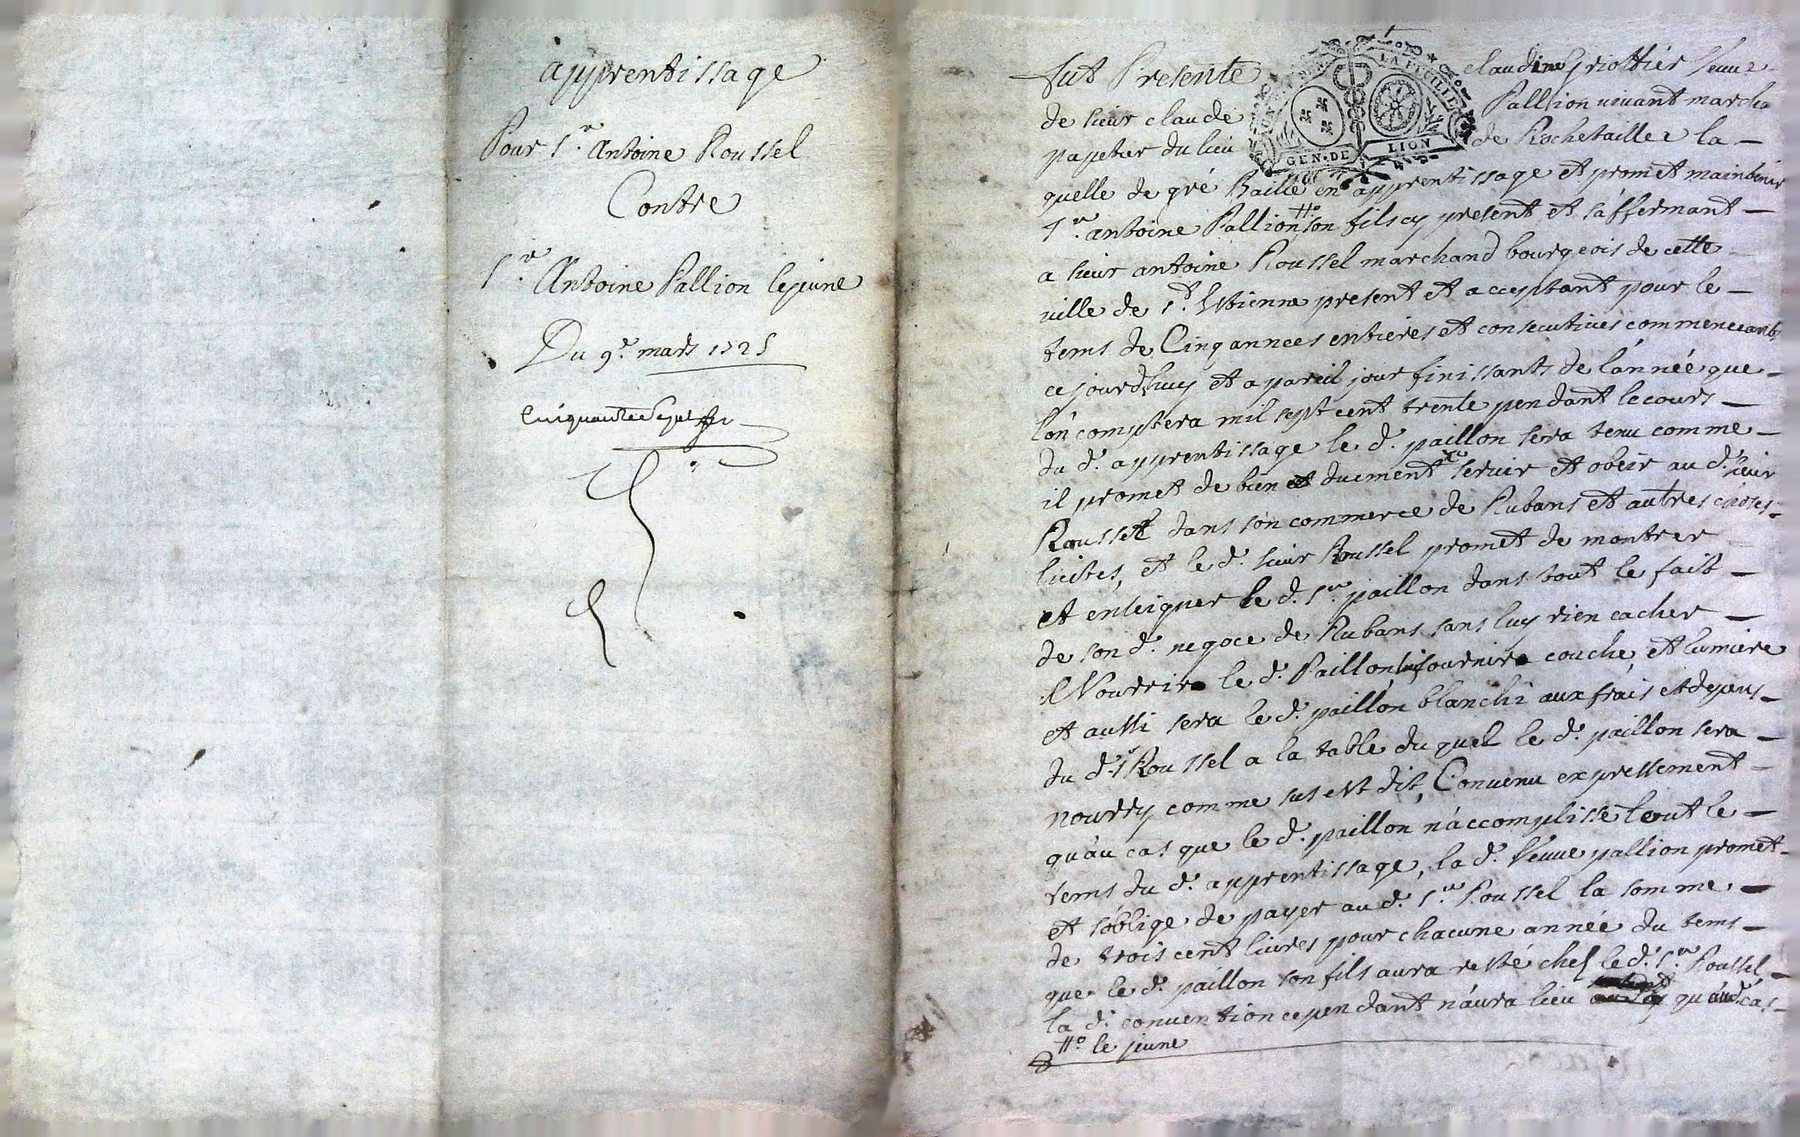 apprentissage
Pour Sr. Antoine Roussel
Contre
Sr. Antoine Pallion le jeune
Du 9e. mars 1725
fut Presente claudine Griottier veuve
de sieur claude Pallion vivant marchd
papetier du lieu de Rochetaillee la-
quelle de gré Baille en apprentissage et promet maintenir
Sr. antoine Pallion #o son fils cy present et s'affermant -
a sieur antoine Roussel marchand bourgeois de cette -
ville de St. Estienne present et acceptant pour le -
tems de Cinq annees entieres et consecutives commenceants
ce jourd'huy et a pareil jour finissants de l'année que -
l'on comptera mil sept cent trente pendant le cours -
du d. apprentissage le d. paillon sera tenu comme -
il promet de bien et duement servir et obeir au d. sieur
Roussel dans son commerce de Rubans et autres choses -
licites, et le d. sieur Roussel promet de montrer
et enseigner le d. Sr. paillon dans tout le fait -
de son d. negoce de Rubans sans luy rien cacher -
Nourrir le d. Paillon luy fournir couche, et lumiere
et aussi sera le d. paillon blanchi aux frais et depens -
du d. Sr Roussel a la table du quel le d. paillon sera -
nourry comme sus est dit, Convenu expressement -
qu'au cas que le d. paillon n'accomplisse tout le -
tems du d. apprentissage, la d. veuve pallion promet -
et s'oblige de payer au d. Sr. Roussel la somme -
de trois cent livres pour chacune année du tems -
que le d. paillon son fils aura resté chef le d. Sr. Roussel -
la d. convention cependant n'aura lieu qu'aud. cas -
#o le jeune
GEN. DE LION